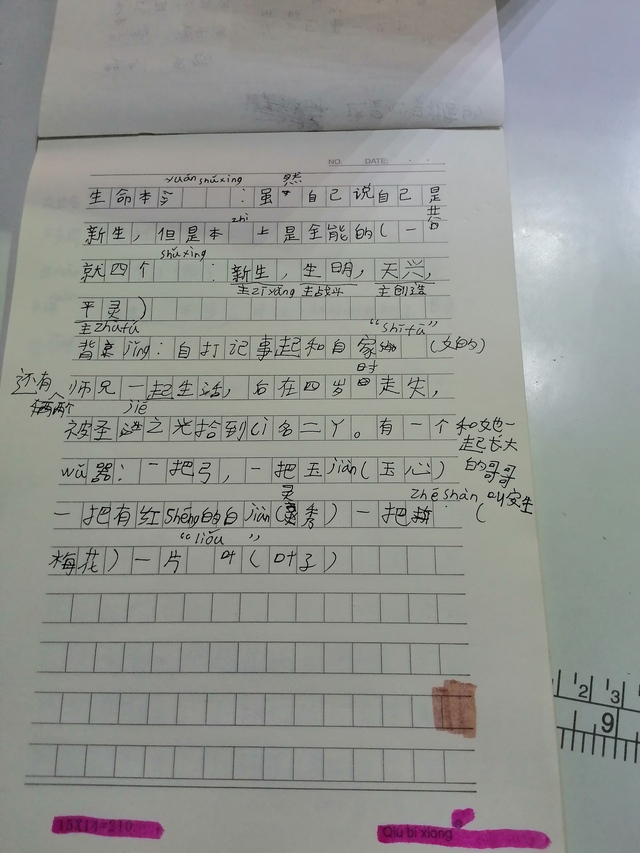 NO. DATE:
yuán shǔxìng 然
生命本 : 虽 自己说自己是
zhì 共
新生，但是本 上是全能的（一 容
shǔxìng
就四个 : 新生，生明，天兴，
主zīyǎng 主战斗 主创造
平灵）
主zhùfú
背景jǐng：自打记事起和自家 “shīfū” （女的）
时
还有 师兄一起生活，后在四岁 走失，
两个 jiē
被圣 之光拾到 名二丫。有一个 和她一起长大的哥哥叫安生
wǔ器：一把弓，一把玉jiàn（玉心）
灵 zhēshàn
一把有红Shéng的白jiàn（ 秀）一把 （
“liǒu”
梅花）一片 叶（叶子）
15X14=210
Qiu bi xiong
2 3
9